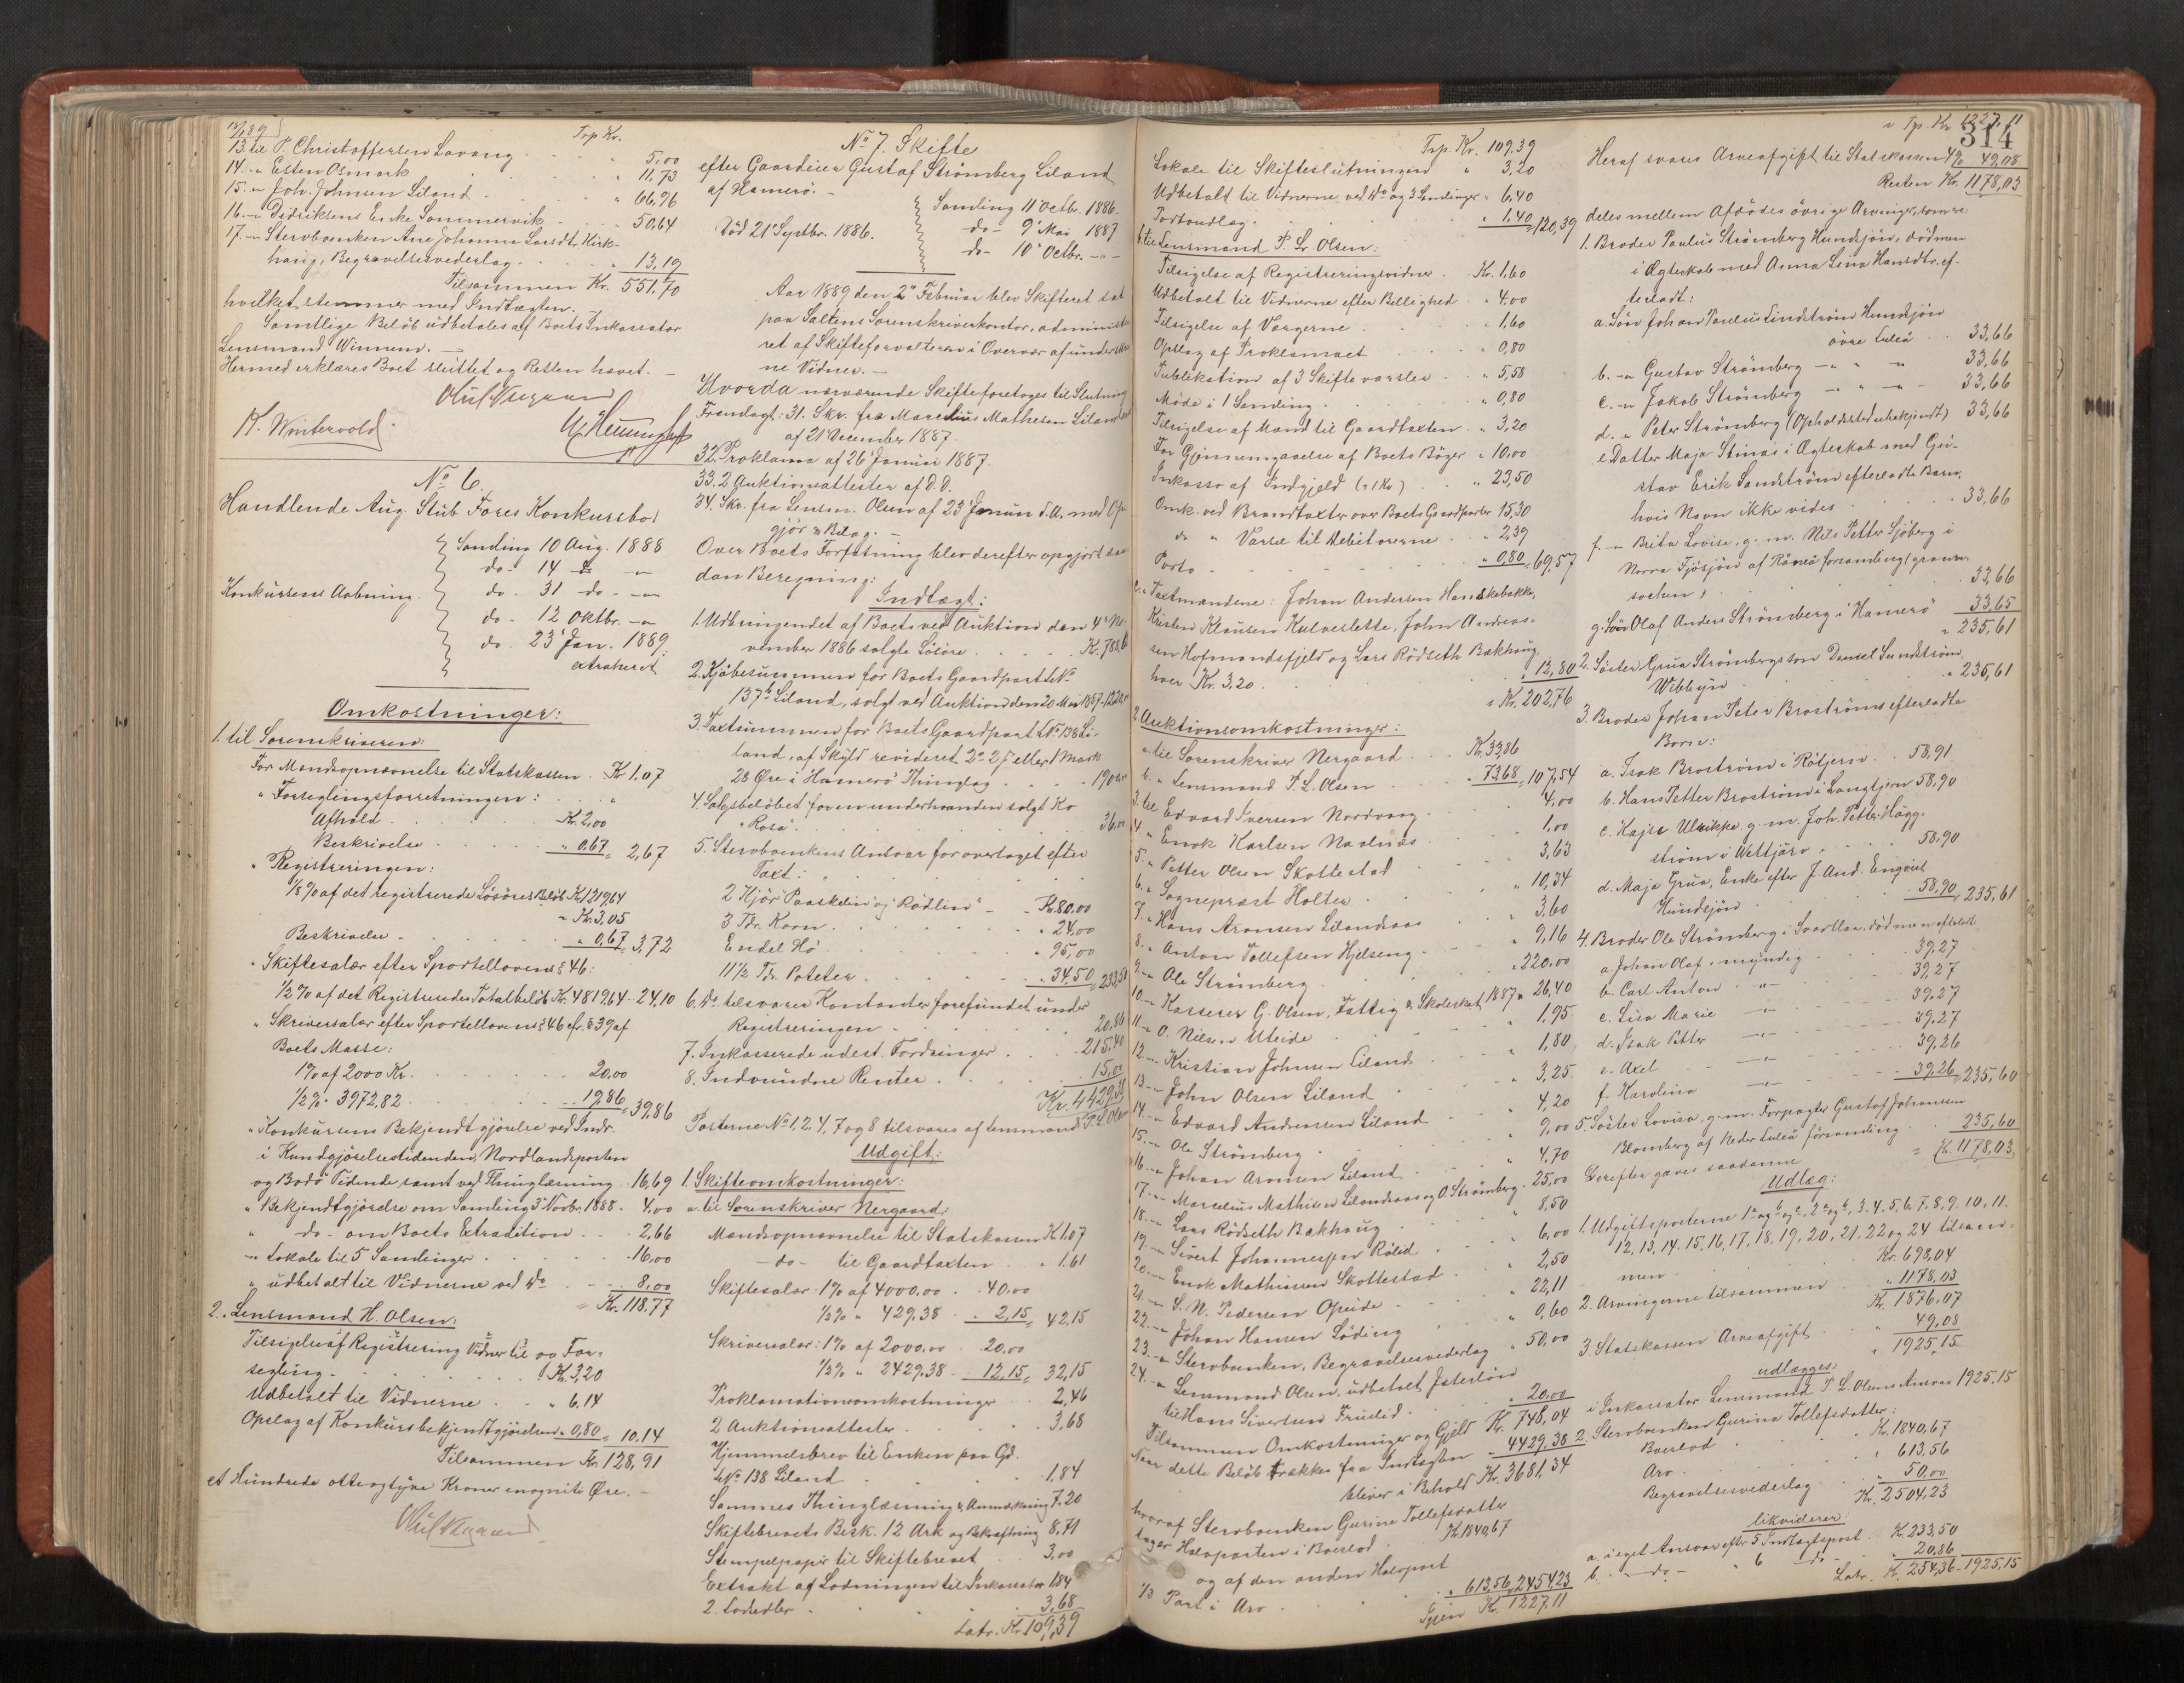 18/1 89
Trp Kr.
13. til P. Christoffersen Lavang " 5,00
14. " Esten Osmark " 11,73
15. " Joh. Johnsen Liland " 66,76
16. " Didriksens Enke Sommervik " 50,64
17. " Stervboenken Ane Johanna Larsdt. Kirk-
haug, Begravelsesvederlag " 13,19
Tilsammen Kr. 551,70
hvilket stemmer med Indtægten.
Samtlige Beløb udbetales af Boets Inkassator
Lensmand Winnem.
Hermed erklæres Boet sluttet og Retten hævet.
K. Wintervold.
No 6.
Handlende Aug. Stub Fores Konkursbo
Konkursens Aabning.
Samling 10 Aug. 1888
do - 14 do - "
do - 31 do - "
do - 12 Oktbr. - "
do - 23' Jan. 1889
extraheret
Omkostninger:
1. til Sorenskriveren:
For Mandsopnævnelse til Statskassen Kr 1.07
" Forseglingsforretningen:
Afhold Kr. 2,00
Beskrivelse " 0,67 = 2,67
" Registreringen:
1/8 % af det registrerede Løsøres Beløb Kr 1219,64
= Kr. 3,05
Beskrivelse " 0,67 = 3,72
" Skiftesalær efter Sportellovens § 46:
1/2 % af det Registrerede Totalbeløb Kr. 4819,64 - 24,10
" Skriversalær efter Sportellovens § 46 cfr. § 39 af
Boets Masse:
1 % af 2000 Kr. 20,00
1/2 % " 3972,82 19,86 = 39,86
" Konkursens Bekjendtgjørelse ved Indr.
i Kundgjørelsestidenden, Nordlandsposten
og Bodø Tidende samt ved Thinglæsning 16,69
" Bekjendtgjørelse om Samling 3 Novbr. 1888 - 4,00
" do - om Boets Extradition 2,66
" Lokale til 5 Samlinger 16,00
" udbetalt til Vidnerne ved do 8,00
= Kr. 118,77
2. Lensmand H. Olsen:
Tilsigelse af Registrering Vidner til og For-
segling Kr. 3,20
Udbetalt til Vidnerne " 6,14
Opslag af Konkursbekjendtgjørelsen " 0,80 = 10,14
Tilsammen Kr. 128,91
et Hundrede otteogtyve Kroner enognitti Øre.
No 7. Skifte
efter Gaardeier Gustaf Strømberg Liland
af Hamerø.
Død 21' Septbr. 1886.
Samling 11' Octbr. 1886.
do - 9' Mai 1887
do - 10' Octbr. - " -
Aar 1889 den 2' Februar blev Skifteret sat
paa Saltens Sorenskriverkontor, administ-
ret af Skifteforvalteren i Overvær af underskrev-
ne Vidner.
Hvorda nærværende Skifte foretoges til Slutning
Fremlagt: 31. Skr. fra Marcelius Mathesen Liland
af 21' December 1887.
32. Proklama af 26' Januar 1887.
33. 2 Auktionsattester af D.D.
34. Skr. fra Lensm. Olsen af 23' Januar d.A. med Op-
gjør & Bilag.
Over Boets Forfatning blev derefter opgjort saa-
dan Beregning:
Indtægt:
1. Udbringendet af Boets ved Auktion den 4' No-
vember 1886 solgte Løsøre Kr. 788,6
2. Kjøbesummen for Boets Gaardpart L.No
137b Liland, solgt ved Auktion den 20 Mai 1887 - 1220,00
3. Taxtsummen for Boets Gaardpart L.No 138 Li-
land, af Skyld revideret 2 - 27 eller 1 Mark
28 Øre i Hamerø Thinglag 1900,00
4. Salgsbeløbet for en underhaanden solgt Ko
"Rosa" 36,00
5. Stervboenkens Ansvar for overtaget efter
Taxt:
2 Kjør "Paaskelin" og "Rødlin" Kr. 80,00
3 Tdr. Korn " 24,00
En del Hø " 95,00
11 1/2 Td. Poteter " 34,50 = 233,50
6. Do tilsvarer Kontanter forefundet under
Registreringen 20,86
7. Inkasserede udest. Fordringer 215,40
8. Indvundne Renter 15,00
Kr. 4429,38
Posterne No 1, 2, 4, 7 og 8 tilsvares af Lensmand P.L. Olsen
Udgift:
1. Skifteomkostninger:
a. til Sorenskriver Nergaard:
Mandsopnævnelse til Statskassen Kr 1,07
do - til Gaardtaxten " 1,61
Skiftesalær: 1 % af 4000,00 40,00
1/2 % " 429,38 2,15 = 42,15
Skriversalær: 1 % af 2000,00 20,00
1/2 % " 2429,38 12,15 = 32,15
Proklamationsomkostninger 2,46
2 Auktionsattester 3,68
Hjemmelsbrev til Enken paa Gd.
L.No 138 Liland 1,84
Sammes Thinglæsning & Anmærkning 7,20
Skiftebrevets Besk. 12 Ark og Bekræftning 8,71
Stempelpapir til Skiftebrevet 3,00
Extrakt af Lodningen til Inkassator 1,84
2. Lodsedler 3,68
Latr. Kr. 109,39
Trp. Kr. 109,39
Lokale til Skifteslutningen " 3,20
Udbetalt til Vidnerne ved do og 3 Samlinger " 6,40
Portoudlag " 1,40 = 120,39
b. til Lensmand P. L. Olsen:
Tilsigelse af Registreringsvidner Kr. 1,60
Udbetalt til Vidnerne efter Billighed " 4,00
Tilsigelse af Værgerne " 1,60
Opslag af Proklamaet " 0,80
Publikation af 3 Skiftevarsler " 5,58
Møde i 1 Samling " 0,80
Tilsigelse af Mænd til Gaardtaxten " 3,20
For Gjennemgaaelse af Boets Bøger " 10,00
Inkasso af Indgjæld " 23,50
Omk. ved Brandtaxter over Boets Gaardparter 15,30
do " Varsel til Debitorerne " 2,39
Porto " 0,80 = 69,57
c. " Taxtmændene: Johan Andersen Hanskebakke,
Kristen Klausen Kulveslette, John Andreas-
sen Hofmandsfjeld og Lars Rødseth Bakhaug,
hver Kr. 3,20 " 12,80
= Kr. 202,76
2. Auktionsomkostninger:
a. til Sorenskriver Nergaard Kr. 33,86
b. " Lensmand P. L. Olsen " 73,68 = 107,54
3. til Edvard Iversen Nordvaag 4,00
4. " Enok Karlsen Naalnæs 1,00
5. " Petter Olsen Skottestad 3,63
6. " Sogneprest Holter " 10,34
7. " Hans Aronsen Lilandsaas " 3,60
8. " Anton Tollefsen Hjelseng " 9,16
9. " Ole Strømberg " 220,00
10. " Kasserer G. Olsen, Fattig & Skoleskat 1887 " 26,40
11. " O. Nilsen Uteide " 1,95
12. " Kristian Johnsen Liland " 1,80
13. " John Olsen Liland " 3,25
14. " Edvard Andersen Liland " 4,20
15. " Ole Strømberg " 9,00
16. " Johan Aronsen Liland " 4,70
17. " Marcelius Mathisen Lilandsaas og O. Strømberg - 25,00
18. " Lars Rødseth Bakhaug " 8,50
19. " Sivert Johannessen Rølid " 6,00
20. " Enok Mathisen Skottestad " 2,50
21. " S. N. Pedersen Opeide " 22,11
22. " Johan Hansen Løding " 0,60
23. " Stervboenken, Begravelsesvederlag " 50,00
24. " Lensmand Olsen, udbetalt
til Hans Sivertsen Fruelid " 20,00
Tilsammen Omkostninger og Gjeld Kr. 748,04
Naar dette Beløb trækkes fra Indtægten " 4429,38
bliver i Behold Kr. 3681,34
hvoraf Stervboenken Gurine Tollefsdatter
tager Halvparten i Boeslod Kr. 1840,67
og af den anden Halvpart
1/3 Part i Arv " 613,56 = 2454,23
Igjen Kr. 1227,11
314
" Tp. Kr 1227,11
Heraf svares Arveafgift til Statskassen 4 % 49,08
Resten Kr. 1178,03
deles mellem Afdødes øvrige Arvinger, som er:
1. Broder Paulus Strømberg Hundsjön, død men
i Ægteskab med Anna Lina Hansdtr. ef-
terladt:
a. Søn Johan Paulus Lindstrøm Hundsjön
övre Luleå 33,66
b. " Gustav Strømberg - " - " 33,66
c. " Jakob Strømberg - " - " - 33,66
d. " Peter Strømberg (Opholdssted ubekjendt) 33,66
e. Datter Maja Stinas i Ægteskab med Gu-
stav Erik Sandstrøm efterladte Barn,
hvis Navn ikke vides " 33,66
f. " Brita Lovise, g. m. Nils Petter Sjöberg i
Norra Fjösjön af Råneå församling (granne-
sochen) 33,66
g. Søn Olaf Anders Strømberg i Hamerø 33,65
" 235,61
2. Søster Grua Strømbergs Søn Daniel Sundstrøm,
Wibbyn " 235,61
3. Broder Johan Peter Brostrøms efterladte
Børn:
a. Isak Brostrøm i Råtjern 58,91
b. Hans Petter Brostrøm i Langtjern 58,90
c. Kajsa Ulrikke g. m. Joh. Petter Hägg-
strøm i Wettjärv 58,90
d. Maja Grua, Enke efter J. And. Engqvist
Hundsjön 58,90 = 235,61
4. Broder Ole Strømberg i Svartlaa, død men efterladt
a. Johan Olaf, myndig 39,27
b. Carl Anton - " - 39,27
c. Lisa Marie - " - 39,27
d. Isak Petter - " - 39,27
e. Axel - " - 39,26
f. Karolina - " - 39,26 = 235,60
5. Søster Lovisa, g. m. Forpagter Gustaf Johansson
Blomberg af Neder Luleå församling 235,60
= Kr. 1178,03
Derefter gaves saadanne
Udlæg:
1. Udgiftsposterne 1a og b og c, 2a og b, 3, 4, 5, 6, 7, 8, 9, 10, 11,
12, 13, 14, 15, 16, 17, 18, 19, 20, 21, 22 og 24 tilsam-
men Kr. 698,04
2. Arvingerne tilsammen " 1178,03
Kr. 1876,07
3. Statskassen Arveafgift " 49,08
" 1925,15
udlægges:
i Inkassator Lensmand P. L. Olsens Ansvar 1925,15
2. Stervboenken Gurina Tollefsdatter:
Boeslod Kr. 1840,67
Arv " 613,56
Begravelsesvederlag " 50,00
Kr. 2504,23
likviderer:
a. i eget Ansvar efter 5 Indtægtspost Kr. 233,50
b. " - do - " 6 - do - 20,86
Latr. Kr. 254,36 - 1925,15